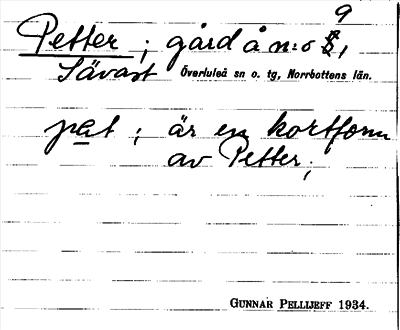 Petter ; gård å n:o 9,
Sävast Överluleå sn o. tg, Norrbottens län.
pat ; är en kortform
av Petter ;
GUNNAR PELLIJEFF 1934.